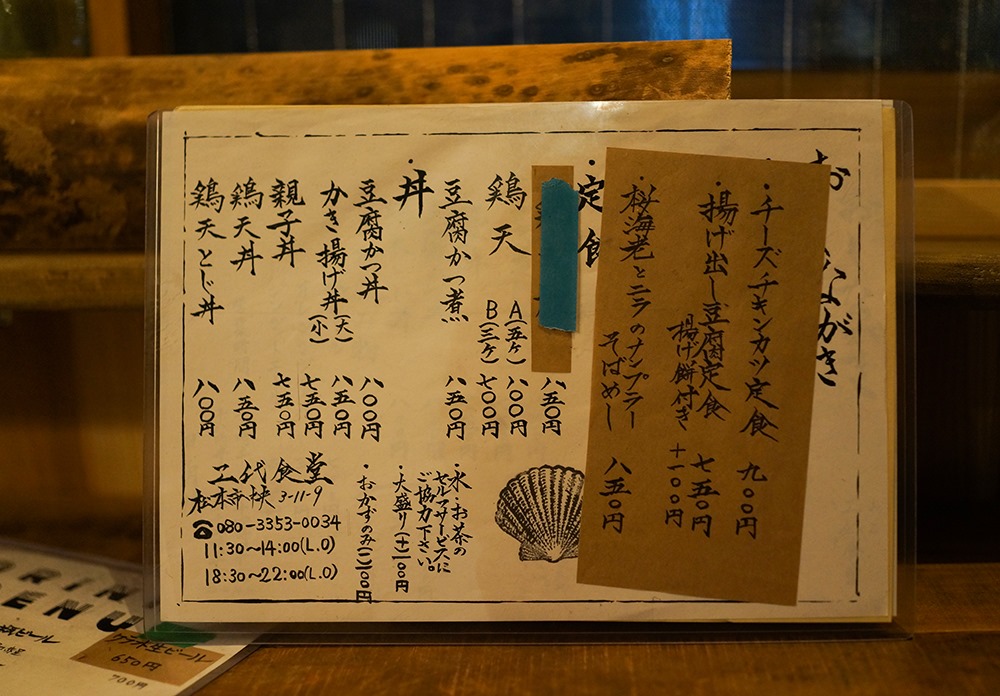 お ながき
・チーズチキンカツ定食 九〇〇円
・揚げ出し豆腐定食 七五〇円
揚げ餅付き +一〇〇円
・桜海老とニラのナンプラー
そばめし 八五〇円
・定食
八五〇円
鶏天 A(五ケ) 八〇〇円
B(三ケ) 七〇〇円
豆腐かつ煮 八五〇円
・丼
豆腐かつ丼 八〇〇円
かき揚げ丼(大) 八五〇円
(小) 七五〇円
親子丼 七五〇円
鶏天丼 八五〇円
鶏天とじ丼 八〇〇円
・水・お茶の
セルフサービスに
ご協力下さい。
・大盛り(+)一〇〇円
・おかずのみ(−)一〇〇円
三代食堂
松本市中央 3-11-9
☎080-3353-0034
11:30〜14:00(L.O)
18:30〜22:00(L.O)
RIN
ENU
ビール
クラフト生ビール
650円
700円